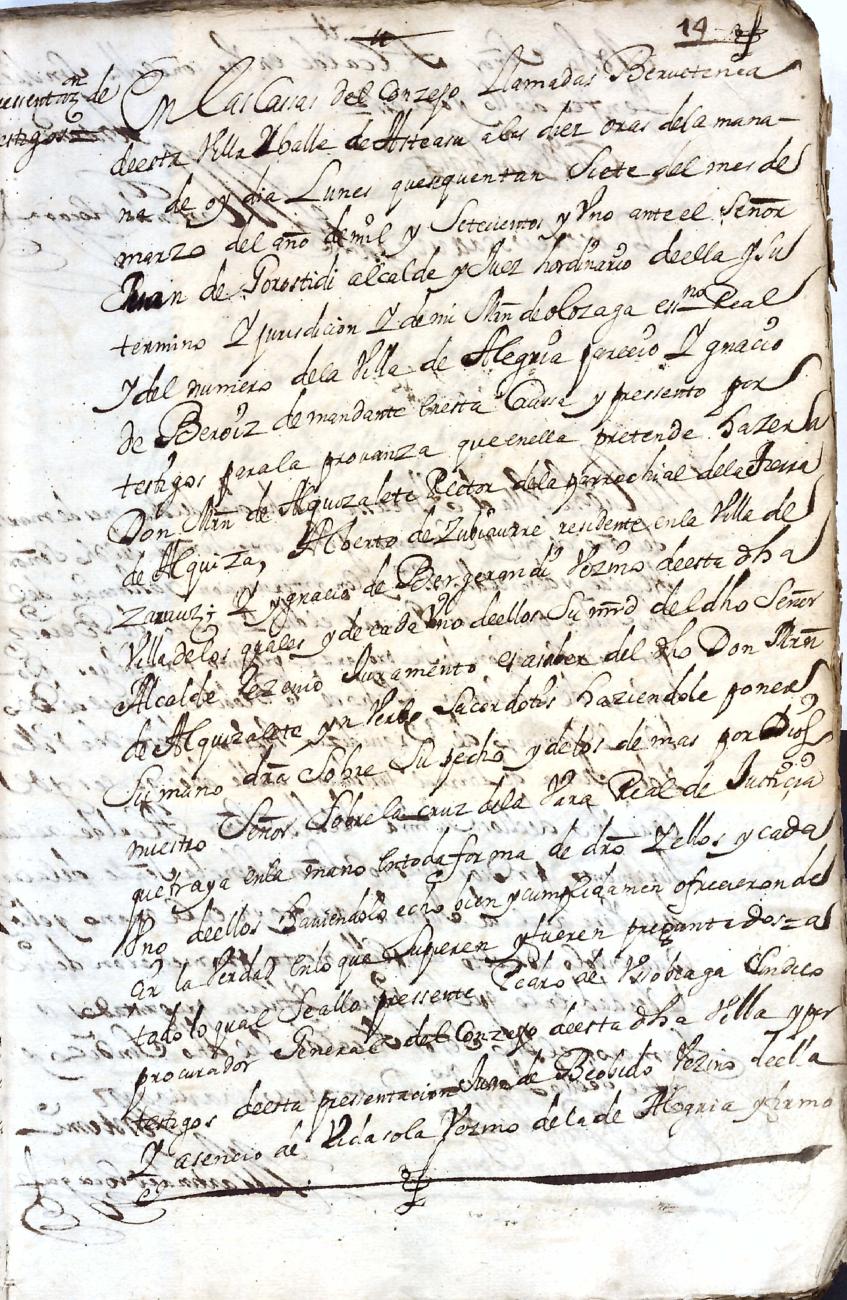 14
pressentaz.n de
testigos
En Las Cassas del Conzejo Llamadas
deesta Villa Y balle de Asteasu a las diez oras dela mana-
na de oy dia Lunes quesequentan Siete del mes de
marzo del año de mil y Setecientos y Vno ante el Señor
Juan de Gorostidi alcalde y Juez hordinario deella y su
termino Y jurisdicion Y de mi Mrn de olozaga essno Real
Y del numero dela Villa de Alegria parecio Ygnacio
de Beroiz demandante en esta Caussa y pressento por
testigos parala provanza que enella pretende hazer a
Don Mrn de Alquizalete Rector dela parrochial dela tierra
de Alquiza, Alberto de Zubiaurre residente enla Villa de
Zarauz; Y ygnacio de Bergerandi Vezino deesta dha
Villa delos quales y de cada Vno deellos Su mrd del dho Señor
Alcalde Rezevio Juramento es asaber del dho Don Mrn
de Alquizalete yn Verbo Sacerdotis haziendole poner
Su mano dra Sobre Su pecho y delos demas por Dios
nuestro Señor Sobre la cruz dela Vara Real de Justicia
que traya enla mano en toda forma de dro Y ellos y cada
Vno deellos haviendolo echo bien y cumplidamen ofrecieron de
cir la Verdad en lo que Supieren y fueren preguntados = a
todo lo qual Se allo pressente Pedro de Sindico
procurador General del Conzejo deesta dha Villa y por
testigos deesta presentacion Juan de Beobide Vezino deella
Y asencio de Vidasola Vezino dela de Alegria y firmo